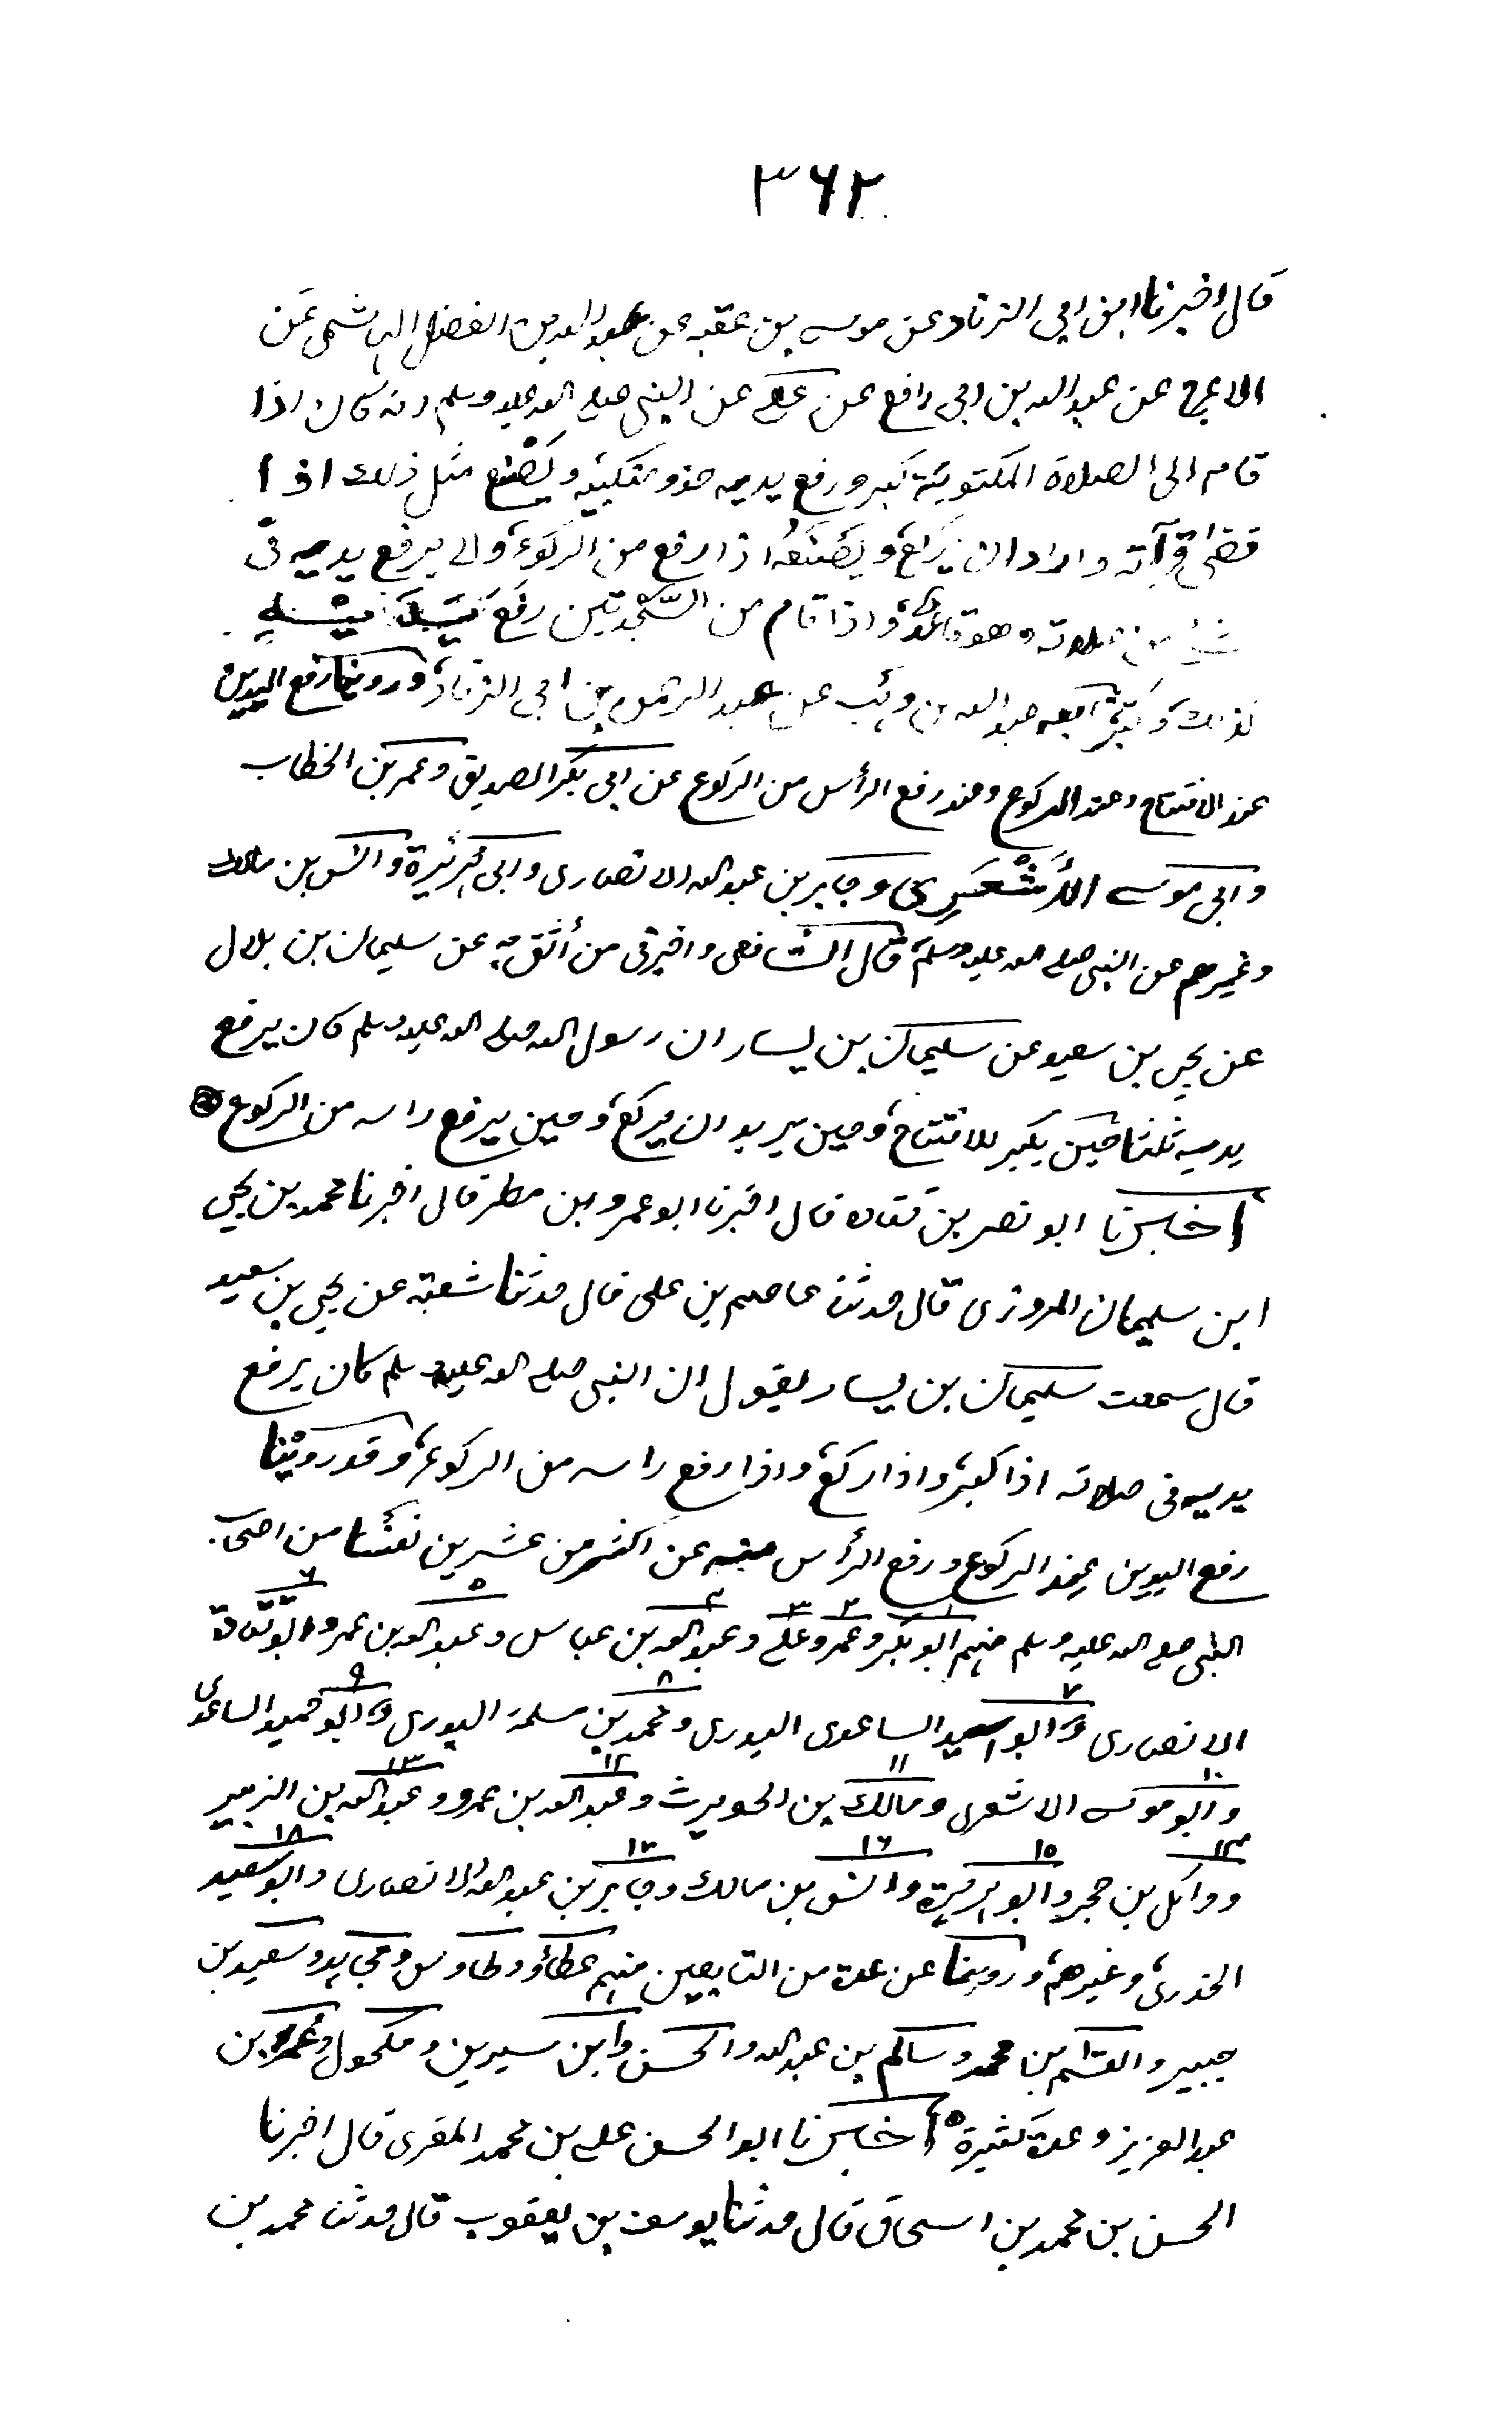 ٣٦٢
قال اخبرنا ابن ابي الزناد عن موسى بن عقبه عن عبد الله بن الفضل الهاشمى عن
الاعرج عن عبيد الله بن ابى رافع عن على عن النبي صلى الله عليه وسلم انه كان اذا
قام الى الصلاة المكتوبة كبر ورفع يديه حذو منكبيه ويصنع مثل ذلك اذا
قضى قرآته واراد ان يركع ويصنعه اذا رفع من الركوع ولا يرفع يديه فى
شئ من صلاته وهو قاعد واذا قام من السجدتين رفع يديه
كذلك وكبر تابعه عبد الله بن وهب عن عبد الرحمن بن ابى الزناد وروينا رفع اليدين
عند الافتتاح وعند الركوع وعند رفع الرأس من الركوع عن ابى بكر الصديق وعمر بن الخطاب
وابى موسى الأشعرى وجابر بن عبد الله الانصارى وابى هريرة وانس بن مالك
وغيرهم عن النبى صلى الله عليه وسلم قال الشافعى واخبرنى من أثق به عن سليمان بن بلال
عن يحيى بن سعيد عن سليمان بن يسار ان رسول الله صلى الله عليه وسلم كان يرفع
يديه ثلثا حين يكبر للافتتاح وحين يريد ان يركع وحين يرفع راسه من الركوع
أخبرنا ابو نصر بن قتادة قال اخبرنا ابو عمرو بن مطر قال اخبرنا محمد بن يحيى
ابن سليمان المروزى قال حدثنا عاصم بن على قال حدثنا شعبة عن يحيى بن سعيد
قال سمعت سليمان بن يسار يقول ان النبى صلى الله عليه وسلم كان يرفع
يديه فى صلاته اذا كبر واذا ركع واذا رفع راسه من الركوع وقد روينا
رفع اليدين عند الركوع ورفع الرأس منه عن اكثر من عشرين نفسا من اصحاب
النبى صلى الله عليه وسلم منهم ابو بكر وعمر وعلى وعبد الله بن عباس وعبد الله بن عمر وابو قتادة
الانصارى وابو اسيد الساعدى البدرى ومحمد بن مسلمة البدرى وابو حميد الساعدى
وابو موسى الاشعرى ومالك بن الحويرث وعبد الله بن عمرو وعبد الله بن الزبير
ووائل بن حجر وابو هريرة وانس بن مالك وجابر بن عبد الله الانصارى وابو سعيد
الخدرى وغيرهم وروينا عن عدة من التابعين منهم عطاء وطاوس ومجاهد وسعيد بن
جبير والقسم بن محمد وسالم بن عبد الله والحسن وابن سيرين ومكحول وعمر بن
عبد العزيز وعدة كثيرة أخبرنا ابو الحسن على بن محمد المقرى قال اخبرنا
الحسن بن محمد بن اسحاق قال حدثنا يوسف بن يعقوب قال حدثنا محمد بن